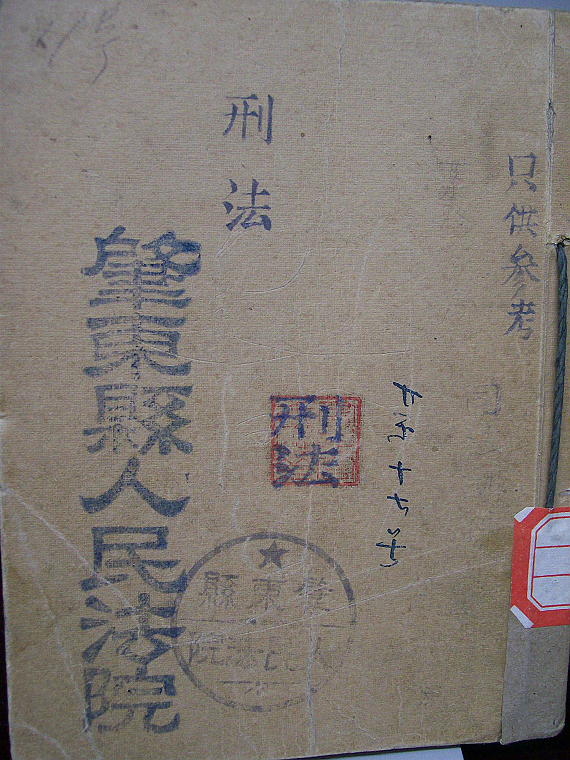 只供参考
刑法
刑法
十七号
肇東縣人民法院
肇東縣
人民法院